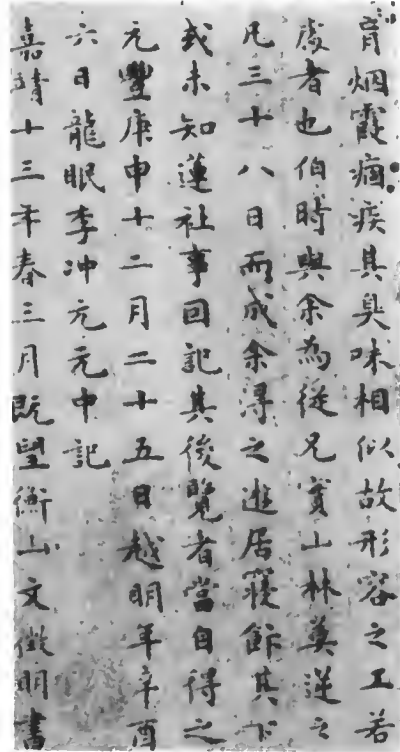 肓烟霞痼疾其臭味相似故形容之工若
處者也伯時與余為從兄實山林莫逆之
凡三十八日而成余得之遊居寢飰其下
或未知蓮社事囙記其後覽者當自得之
元豐庚申十二月二十五日越明年辛酉
六日龍眠李冲元元中記
嘉靖十三年春三月既望衡山文徵明書